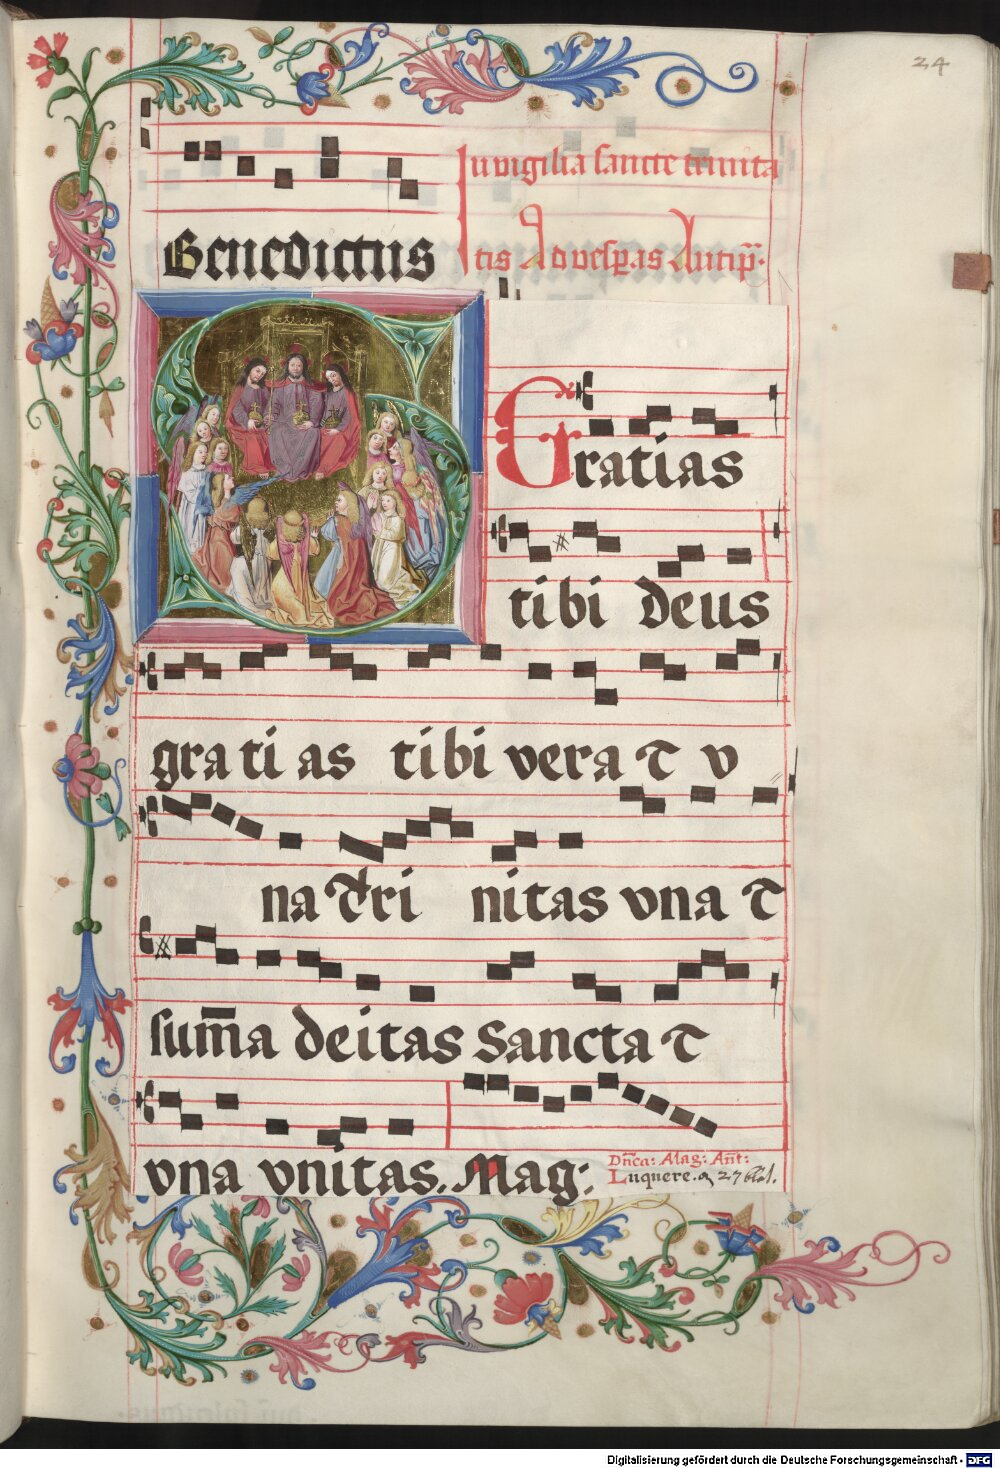 24
In vigilia sancte trinita
Benedictus
tis Ad vesperas Antiph̄.
Gratias
tibi deus
gra ti as tibi vera ⁊ v
na Tri nitas vna ⁊
sum̄a deitas Sancta ⁊
vna vnitas. Mag:
Dn̄ca: Mag: Ant̄:
Luquere. a 27
Digitalisierung gefördert durch die Deutsche Forschungsgemeinschaft - DFG